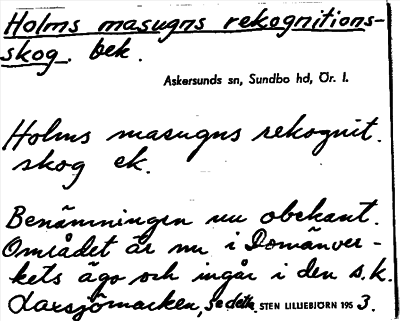 Holms masugns rekognitions-
skog. bek.
Askersunds sn, Sundbo hd, Ör. l.
Holms masugns rekognit.
skog ek.
Benämningen nu obekant.
Området är nu i Domänver-
kets ägo och ingår i den s.k.
Laxsjömarken, se detta. STEN LILLIEBJÖRN 1953.